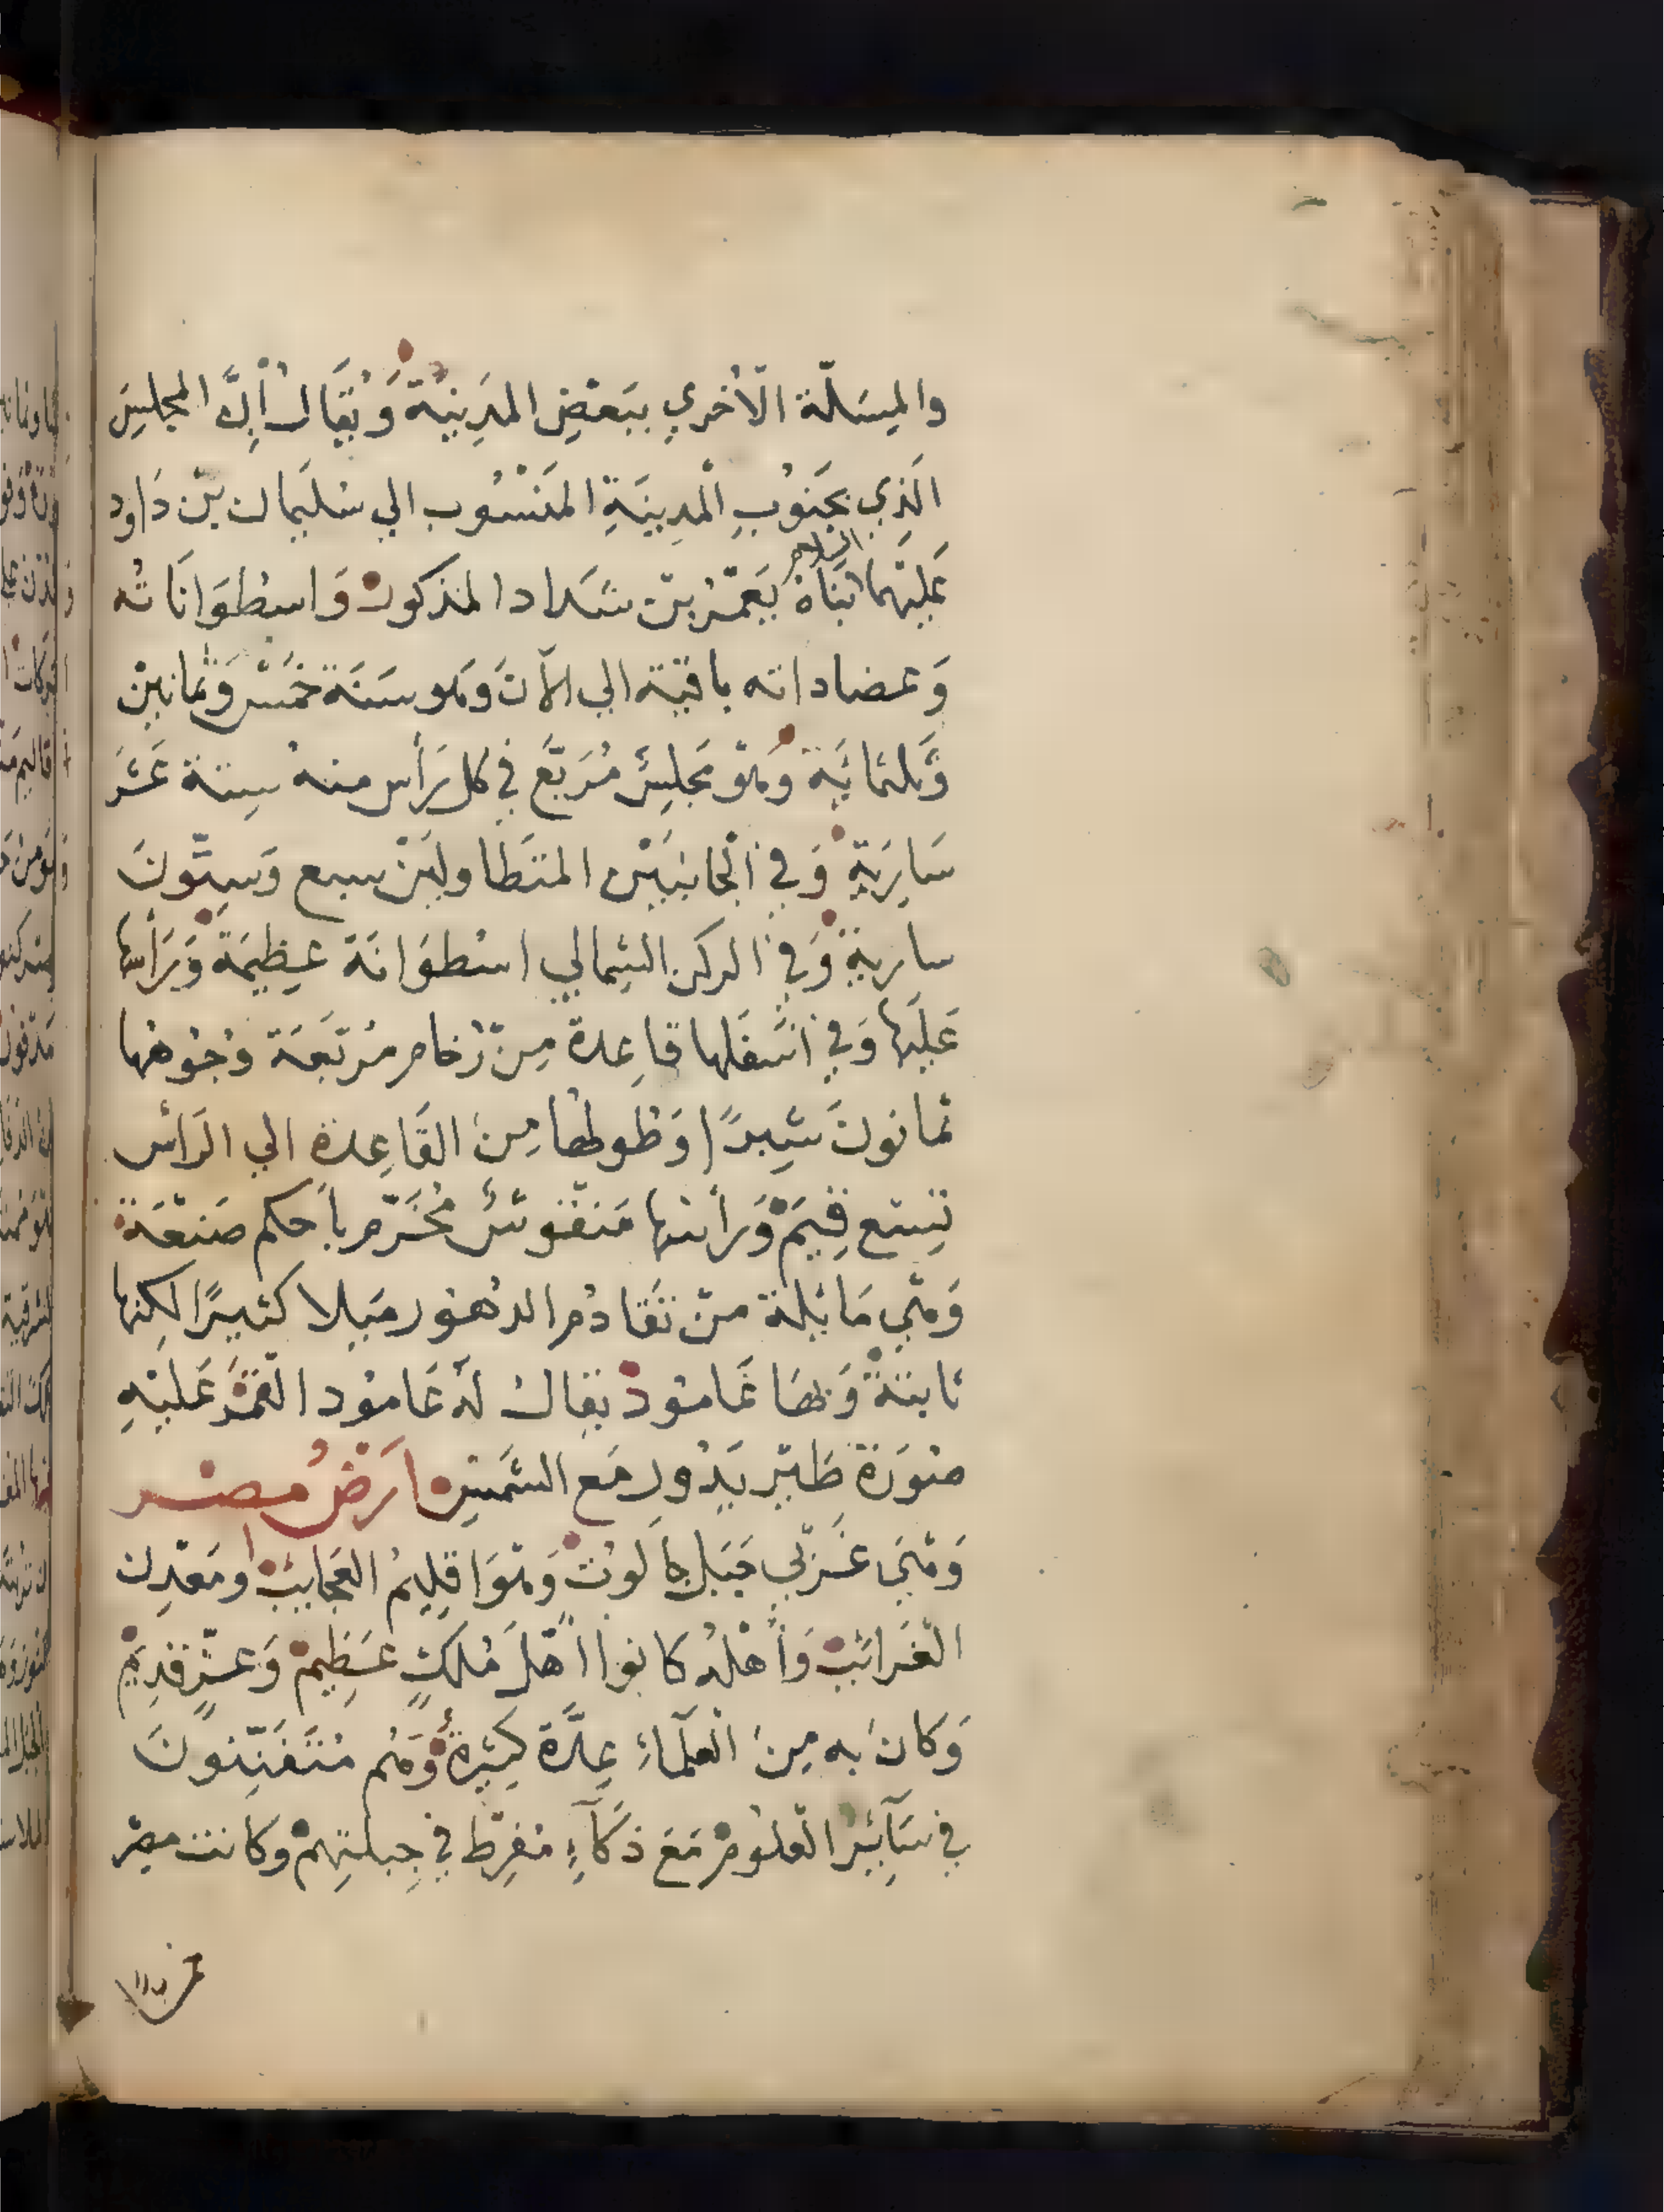 والمِسَلّة الأخري ببَعْضِ المدِينةِ وَيُقَالُ اِنَّ المجلِسَ
الَذِي بجَنُوبِ الْمدِينَةِ المَنْسُوب الي سُليمان بنْ دَاود
عَليْهما السلام بَنَاهُ يَعْمُرْ بنْ شدَاد المذكورُ وَاسطوَانَاتُه
وَعضاداته باقية الي الآنَ وَهو سَنَة خمْسْ وَثمانينْ
وَثلثمائَةِ وَهْوَ مَجلِسٌ مُرَبَّع في كل رَأس منه سِتة عَشَرَ
سَارِيَةٍ وَفي الْجانبَيْن المتَطاولَيْن سبع وَسِتُّونَ
ساريةً وَفي الركن الشِمالي اسْطوَانَة عظِيمَةٌ وَرَأسُهَا
عَليَها وَفي اسْفَلها قاعِدة مِنْ رُخام مُرَبَّعَة وُجُوهُها
ثمانونَ شِبرًا وَطُولُها مِنَ القَاعِدةِ الي الرَأس
تِسع قِيَمْ وَرأسها مَنقُوشٌ مُخَرَّم باَحكم صَنعَةٍ
وَهْي مَائلة منْ تقادُم الدهُور مَيلا كثيرًا لكنها
ثابتَةٌ وَبهَا عَامُودٌ يقال لَهُ عَامُود القمَر عَليْهِ
صُورَة طَيْر يَدُور مَع الشَّمْسِ ارَضُ مصْر
وَهْيَ غَرْبي جَبَل جالوُتْ وَهْوَ اقلِيم العَجايبْ ومَعْدِن
الْغَرائبْ وَأَهْلُه كانوا اَهْلَ مُلكٍ عَظِيمْ وَعِزٍّ قدِيم
وَكانَ به مِنَ الْعلمَاءِ عِدَّة كثِيرةٌ وَهُم مُتَفَنِّنونَ
في سَآئِرْ الْعلوُمْ مَعَ ذكَآءٍ مُفرِط في جِبلتِهِمْ وكانت مصْر